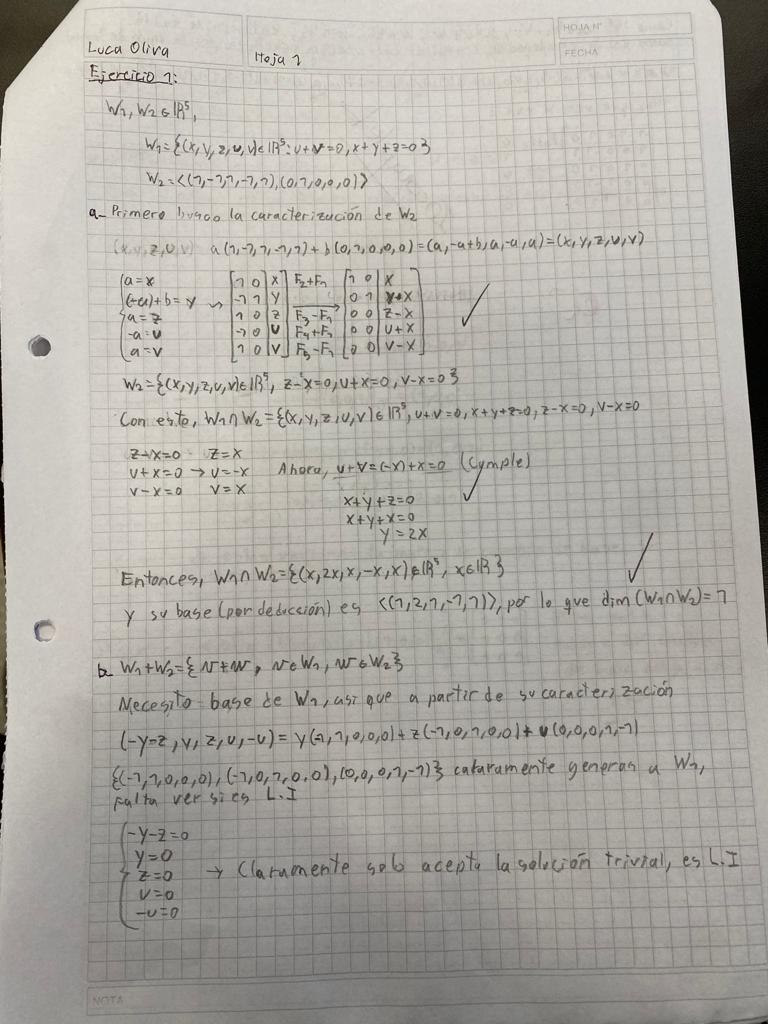 HOJA N°
FECHA
Luca Oliva
Hoja 1
Ejercicio 1:
W1, W2 ∈ ℝ⁵,
W1={(x,y,z,u,v)∈ℝ⁵: u+v=0, x+y+z=0}
W2=<(1,-1,1,-1,1),(0,1,0,0,0)>
a- Primero busco la caracterización de W2
(x,y,z,u,v) a(1,-1,1,-1,1)+b(0,1,0,0,0)=(a,-a+b,a,-a,a)=(x,y,z,u,v)
a=x 1 0 | x F2+F1 1 0 | x
(-a)+b=y -1 1 | y 0 1 | y+x
a=z 1 0 | z F3-F1 0 0 | z-x
-a=u -1 0 | u F4+F1 0 0 | u+x
a=v 1 0 | v F5-F1 0 0 | v-x
W2={(x,y,z,u,v)∈ℝ⁵, z-x=0, u+x=0, v-x=0}
Con esto, W1∩W2={(x,y,z,u,v)∈ℝ⁵, u+v=0, x+y+z=0, z-x=0, v-x=0
z-x=0 z=x
u+x=0 → u=-x Ahora, u+v=(-x)+x=0 (Cumple)
v-x=0 v=x
x+y+z=0
x+y+x=0
y=2x
Entonces, W1∩W2={(x,2x,x,-x,x)∈ℝ⁵, x∈ℝ}
y su base (por deducción) es <(1,2,1,-1,1)>, por lo que dim(W1∩W2)=1
b- W1+W2={v+w, v∈W1, w∈W2}
Necesito base de W1, asi que a partir de su caracterización
(-y-z,y,z,u,-u)=y(-1,1,0,0,0)+z(-1,0,1,0,0)+u(0,0,0,1,-1)
{(-1,1,0,0,0),(-1,0,1,0,0),(0,0,0,1,-1)} generas a W1,
falta ver si es L.I
-y-z=0
y=0
z=0 → Claramente solo acepta la solución trivial, es L.I
u=0
-u=0
NOTA